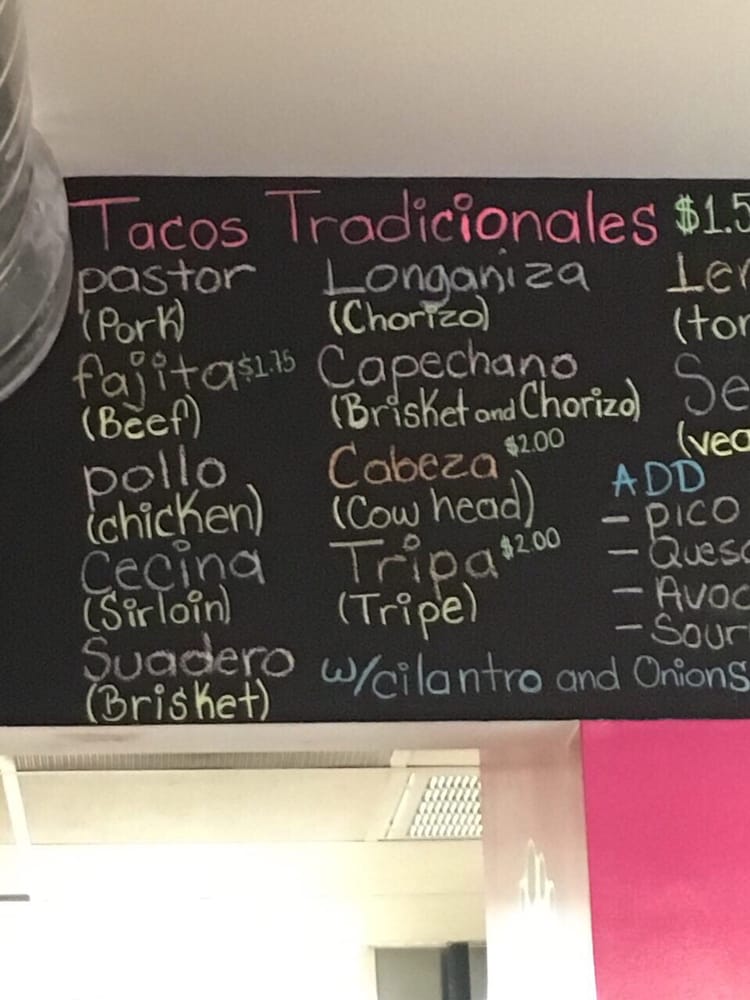 Tacos Tradicionales $1.5
pastor
(Pork)
fajita $1.75
(Beef)
pollo
(chicken)
Cecina
(Sirloin)
Suadero
(Brisket)
Longaniza
(Chorizo)
Capechano
(Brisket and Chorizo)
Cabeza $2.00
(Cow head)
Tripa $2.00
(Tripe)
w/cilantro and Onions
ADD
- PICO
- Sour